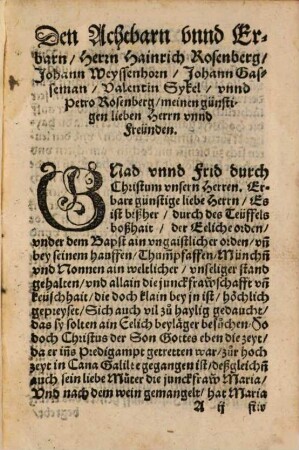 Den Achzbarn vnnd Er-
barn / Herrn Hainrich Rosenberg /
Johann Weyssenhorn / Johann Gas-
seman / Valentin Sykel / vnnd
Petro Rosenberg / meinen günsti-
gen lieben Herrn vnnd
Freünden.
GNad vnnd Frid durch
Christum vnsern Herren, Er-
bare günstige liebe Herrn / Es
ist bißher / durch des Teüffels
boßhait / der Eeliche orden /
vnder dem Bapst ain vngaistlicher orden / vñ
bey seinem hauffen / Thumpfaffen / Münchñ
vnd Nonnen ain weltlicher / vnseliger stand
gehalten / vnd allain die junckfrawschafft vñ
keuschhait / die doch klain bey jn ist / höchlich
gepreyset / Sich auch vil zů haylig gedaucht /
das sy solten ain Eelich beyläger besůchen / So
doch Christus der Son Gottes eben die zeyt /
da er iñs Predigampt getretten war / zůr hoch
zeyt in Cana Galile e gegangen ist / deßgleichñ
auch sein liebe Můter die junckfraw Maria /
Vnd nach dem wein gemangelt / hat Maria
A ij